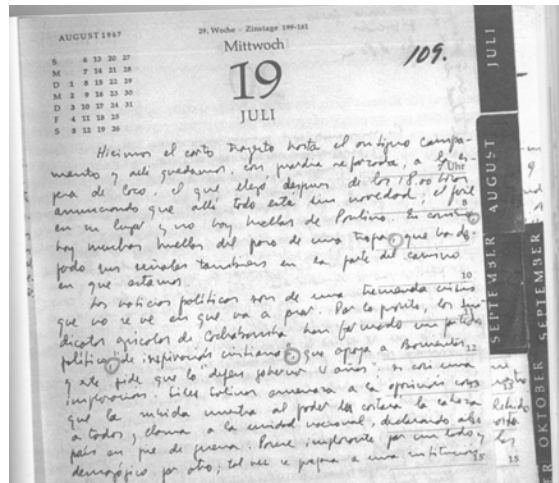 AUGUST 1967
29. Woche - Zinstage 199-161
S 6 13 20 27
M 7 14 21 28
D 1 8 15 22 29
M 2 9 16 23 30
D 3 10 17 24 31
F 4 11 18 25
S 5 12 19 26
Mittwoch
19
JULI
109.
JULI
AUGUST
SEPTEMBER
OKTOBER
SEPTEMBER
Hicimos el corto trayecto hasta el antiguo campa-
mento y allí quedamos, con guardia reforzada, a la es-
7 Uhr
pera de Coco, el que llegó después de las 18.00 horas
anunciando que allí todo está sin novedad; el fusil
8
en su lugar y no hay huellas de Paulino. En cambio
hay muchas huellas del paso de una tropa que ha de-
jado sus señales tambien en la parte del camino
en que estamos.
10
Las noticias políticas son de una tremenda crisis
que no se ve en que va a parar. Por lo pronto, los sin-
dicatos agricolas de Cochabamba han formado un partido
político "de inspiración cristiana" que apoya a Barrientos
12
y este pide que lo "dejen gobernar 4 años"; es casi una
imploración. Siles Salinas amenaza a la oposición con
13
que la subida nuestra al poder les costara la cabeza
a todos, y llama a la unidad nacional, declarando al
país en pie de guerra. Parece implorante por un lado y
demagógico por otro; tal vez se prepara a una
15
15